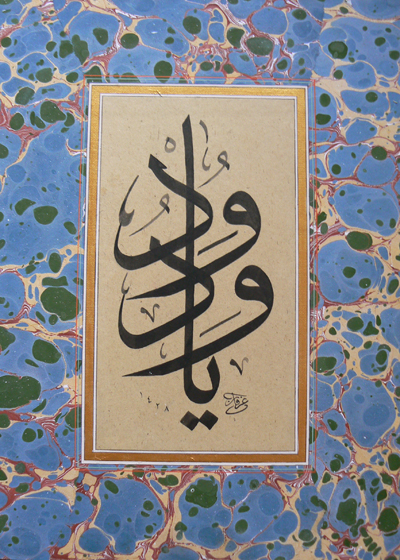 يا ودود
١٤٢٨